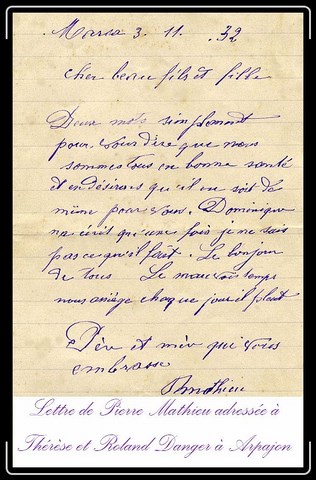 Marca 3. 11. .32
cher beau fils et fille
Deux mots simplement
pour vous dire que nous
sommes tous en bonne santé
et en désirons qu'il en soit de
même pour vous. Dominique
na écrit qu'une fois je ne sais
pas ce qu'il fait. Le bonjour
de tous Le mauvais temps
nous assiège chaque jour il pleut
Père et mère qui vous
embrasse
Pmathieu
Lettre de Pierre Mathieu adressée à
Thérèse et Roland Danger à Arpajon